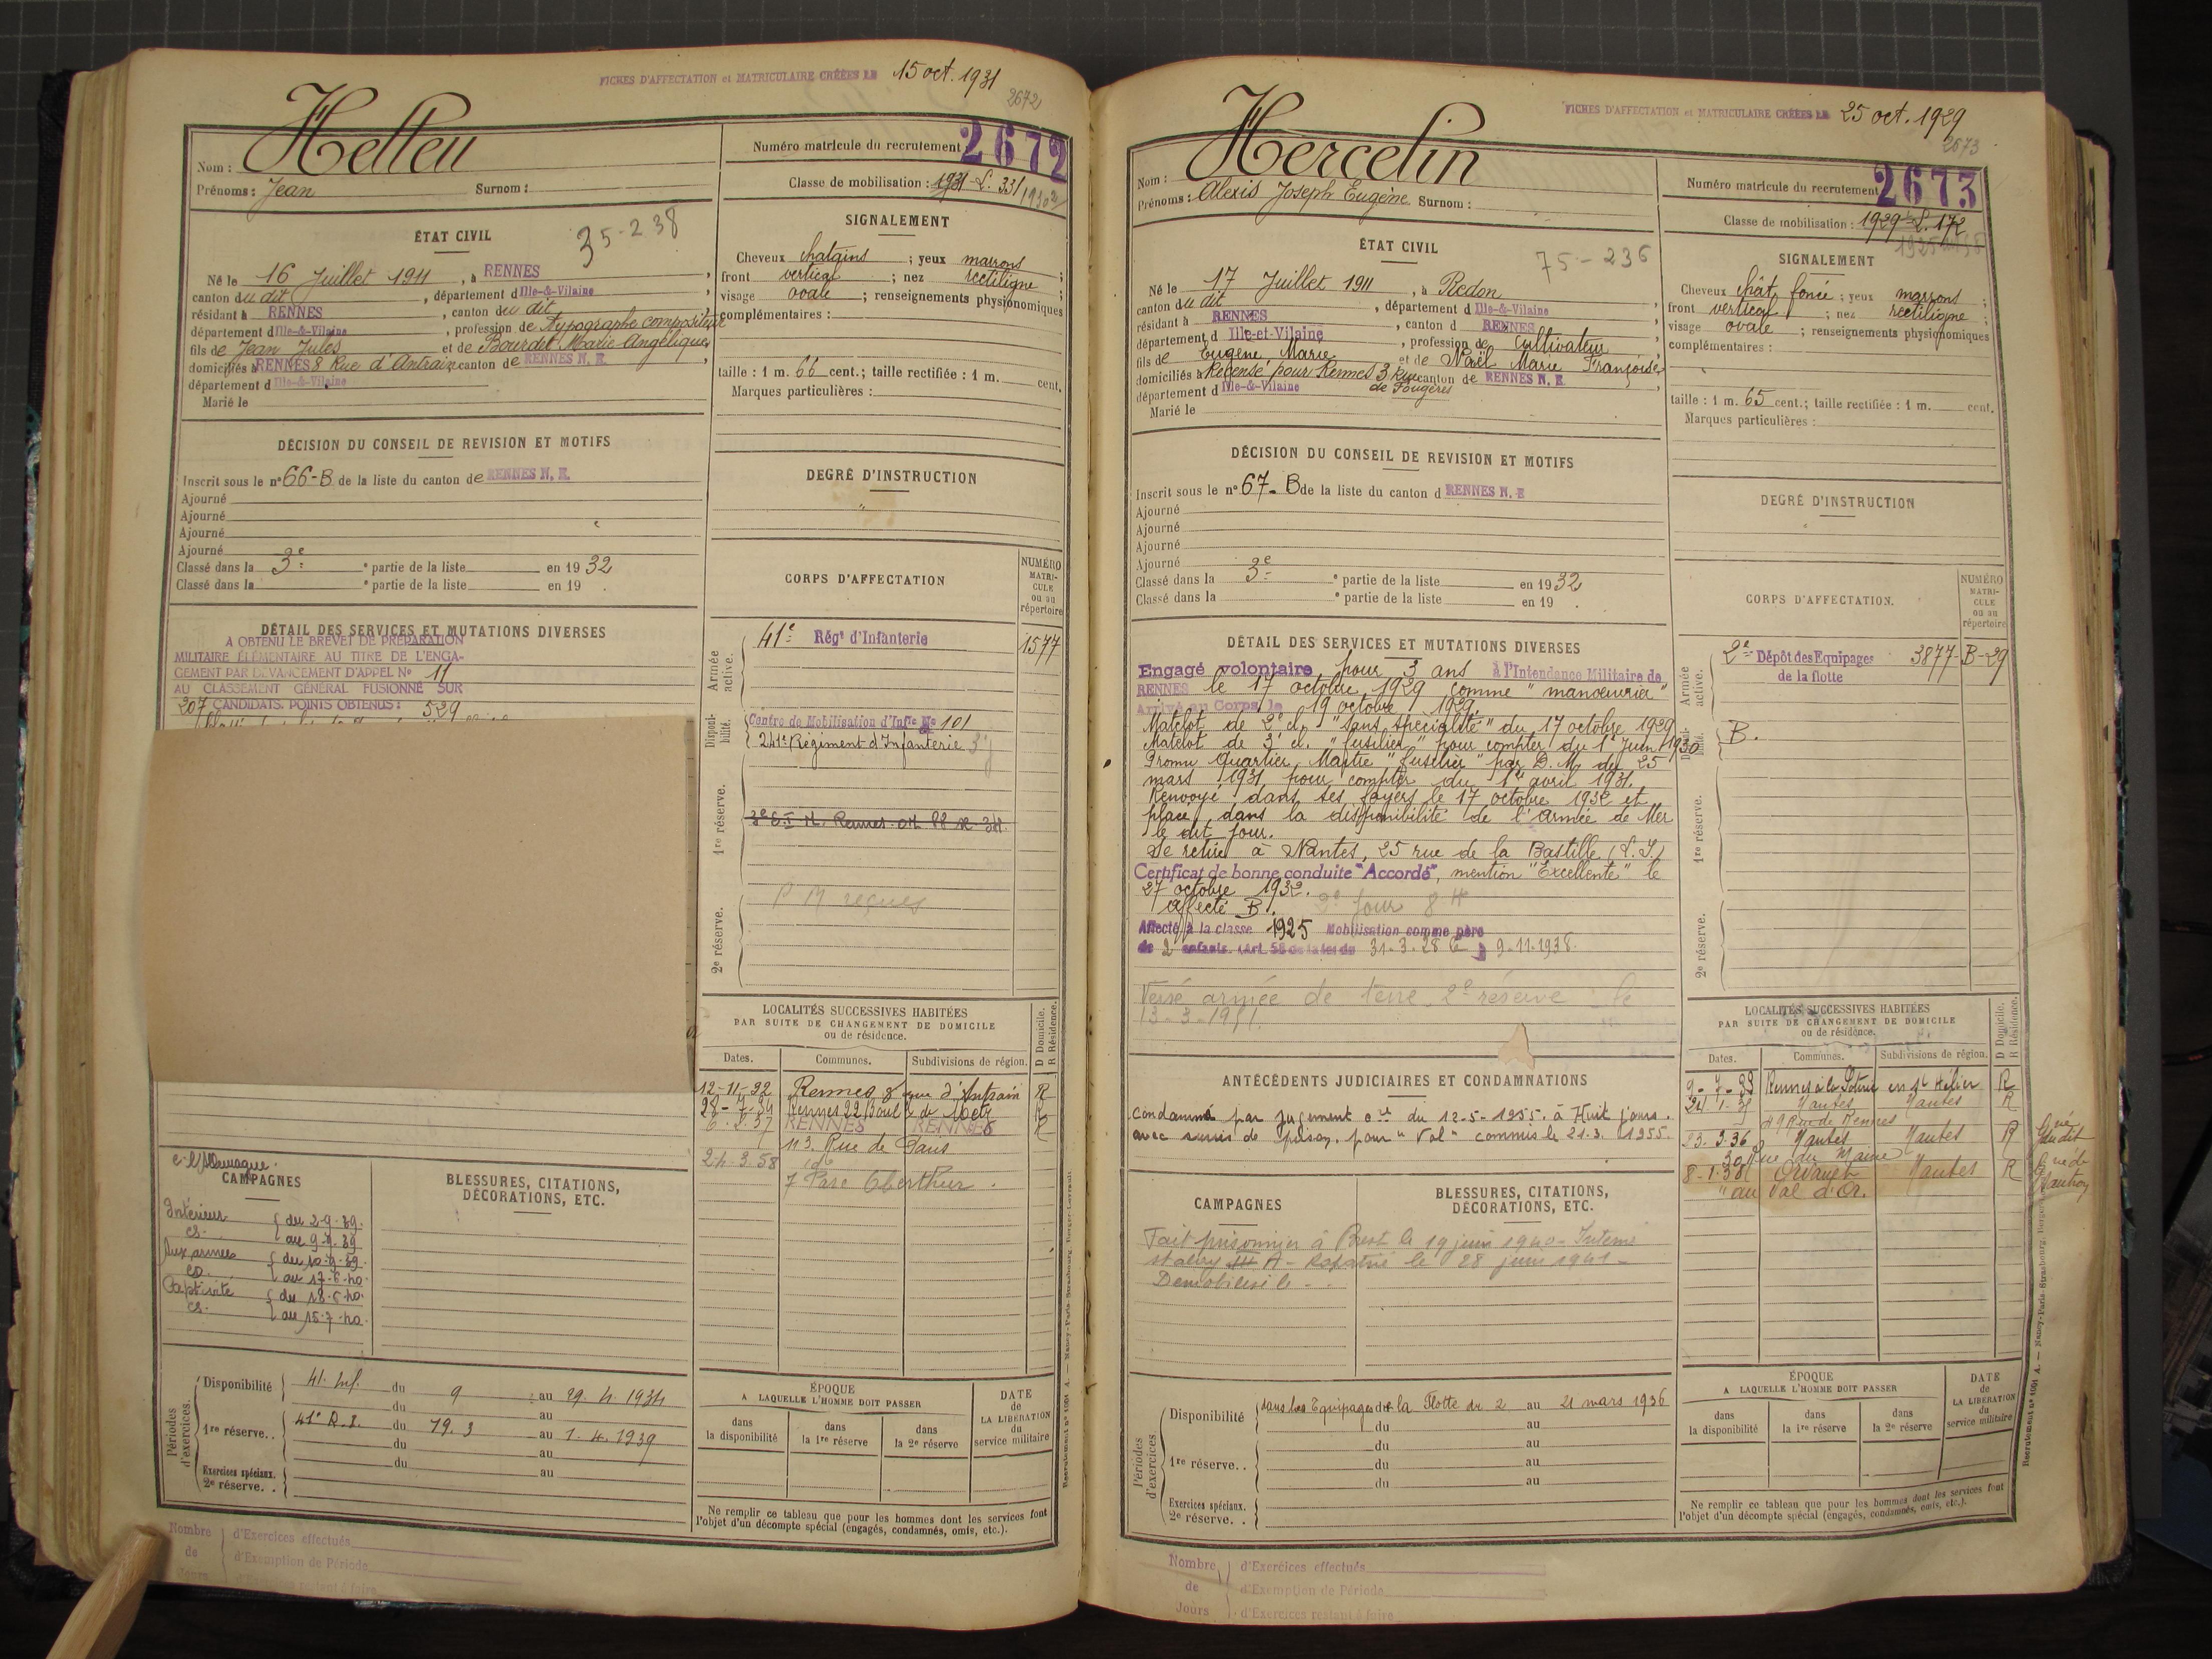 FICHES D'AFFECTATION et MATRICULAIRE CRÉÉES LE 15 oct. 1931
2672
Nom : Helleu
Prénoms : Jean Surnom :
Numéro matricule du recrutement 2672
Classe de mobilisation : 1931
ÉTAT CIVIL
35-238
Né le 16 Juillet 1911, à RENNES,
canton du dit, département d Ille-&-Vilaine
résidant à RENNES, canton du dit,
département d Ille-&-Vilaine, profession de typographe compositeur
fils de Jean Jules et de Bourdet Marie Angélique,
domiciliés à RENNES 8 Rue d'Antrain canton de RENNES N. E.,
département d Ille-&-Vilaine
Marié le
SIGNALEMENT
Cheveux chatains ; yeux marrons ;
front vertical ; nez rectiligne ;
visage ovale ; renseignements physionomiques
complémentaires :
taille : 1 m. 66 cent.; taille rectifiée : 1 m. cent.
Marques particulières :
DÉCISION DU CONSEIL DE REVISION ET MOTIFS
Inscrit sous le n° 66-B de la liste du canton de RENNES N. E.
Ajourné
Ajourné
Ajourné
Ajourné
Classé dans la 3e ° partie de la liste en 1932
Classé dans la ° partie de la liste en 19 .
DEGRÉ D'INSTRUCTION
DÉTAIL DES SERVICES ET MUTATIONS DIVERSES
A OBTENU LE BREVET DE PRÉPARATION
MILITAIRE ÉLÉMENTAIRE AU TITRE DE L'ENGA-
GEMENT PAR DEVANCEMENT D'APPEL N° 11
AU CLASSEMENT GÉNÉRAL FUSIONNÉ SUR
207 CANDIDATS. POINTS OBTENUS : 529
CORPS D'AFFECTATION
NUMÉRO MATRI-CULE ou au répertoire
Armée active.
41e Régt d'Infanterie 1577
Disponibilité.
Centre de Mobilisation d'Infie No 101
241e Régiment d'Infanterie
1re réserve.
2e réserve.
P M reçues
LOCALITÉS SUCCESSIVES HABITÉES
PAR SUITE DE CHANGEMENT DE DOMICILE
ou de résidence.
D Domicile.
R Résidence.
Dates. Communes. Subdivisions de région.
12-11-32 Rennes 8 rue d'Antrain R
Rennes 22 Boul de Metz R
RENNES RENNES R
113 Rue de Paris
24.3.58 id
7 Parc Oberthur.
CAMPAGNES
Intérieur { du 2-9-39.
cs. { au 9-9-39.
Aux armées { du 10-9-39.
cs. { au 17-6-40.
Captivité { du 18-6-40.
cs. { au 15-7-40.
BLESSURES, CITATIONS,
DÉCORATIONS, ETC.
Périodes d'exercices.
Disponibilité 41. Inf. du 9 au 29. 4. 1934
du au
1re réserve.. 41e R.I. du 19. 3 au 1. 4. 1939
du au
du au
Exercices spéciaux.
2e réserve. .
ÉPOQUE
A LAQUELLE L'HOMME DOIT PASSER
dans la disponibilité
dans la 1re réserve
dans la 2e réserve
DATE de LA LIBÉRATION du service militaire
Ne remplir ce tableau que pour les hommes dont les services font
l'objet d'un décompte spécial (engagés, condamnés, omis, etc.).
Nombre de Jours
d'Exercices effectués
d'Exemption de Période
d'Exercices restant à faire
FICHES D'AFFECTATION et MATRICULAIRE CRÉÉES LE 25 oct. 1929
2673
Nom : Hercelin
Prénoms : Alexis Joseph Eugène Surnom :
Numéro matricule du recrutement 2673
Classe de mobilisation : 1929
ÉTAT CIVIL
75-236
Né le 17 Juillet 1911, à Redon,
canton du dit, département d Ille-&-Vilaine
résidant à RENNES, canton d RENNES
département d Ille-et-Vilaine, profession de Cultivateur
fils de Eugène Marie et de Noël Marie Françoise,
domiciliés à Recensé pour Rennes 3 Rue de Fougères canton de RENNES N. E.
département d Ille-&-Vilaine
Marié le
SIGNALEMENT
Cheveux chât. foncé ; yeux marrons ;
front vertical ; nez rectiligne ;
visage ovale ; renseignements physionomiques
complémentaires :
taille : 1 m. 65 cent.; taille rectifiée : 1 m. cent.
Marques particulières :
DÉCISION DU CONSEIL DE REVISION ET MOTIFS
Inscrit sous le n° 67-B de la liste du canton d RENNES N. E
Ajourné
Ajourné
Ajourné
Ajourné
Classé dans la 3e ° partie de la liste en 1932
Classé dans la ° partie de la liste en 19 .
DEGRÉ D'INSTRUCTION
DÉTAIL DES SERVICES ET MUTATIONS DIVERSES
Engagé volontaire pour 3 ans à l'Intendance Militaire de
RENNES le 17 octobre 1929 comme "manoeuvrier"
Arrivé au Corps le 19 octobre 1929.
Matelot de 2e cl. "sans spécialité" du 17 octobre 1929
Matelot de 3e cl. "fusilier" pour compter du 1er Juin 1930
Promu Quartier Maître "fusilier" par D. M. du 25
mars 1931 pour compter du 1er avril 1931.
Renvoyé dans ses foyers le 17 octobre 1932 et
placé dans la disponibilité de l'Armée de Mer
le dit jour.
Se retire à Nantes, 25 rue de la Bastille (L. I.)
Certificat de bonne conduite "Accordé", mention "Excellente" le
27 octobre 1932.
Affecté B.
Affecté à la classe 1925 Mobilisation comme père
de 2 enfants (Art. 58 de la loi du 31-3-28 9-11-1938.
Versé armée de terre 2e réserve le
CORPS D'AFFECTATION.
NUMÉRO MATRI-CULE ou au répertoire
Armée active.
2e Dépôt des Equipages de la flotte 3877-B-29
B.
1re réserve.
2e réserve.
LOCALITÉS SUCCESSIVES HABITÉES
PAR SUITE DE CHANGEMENT DE DOMICILE
ou de résidence.
D Domicile.
R Résidence.
Dates. Communes. Subdivisions de région.
Rennes R
Nantes Nantes R
49 Rue de Rennes
23.3.36 Nantes Nantes R
30 Rue du Maine
8-1-38 Orvault Nantes R
"au Val d'Or.
ANTÉCÉDENTS JUDICIAIRES ET CONDAMNATIONS
Condamné par jugement du 12-5-1955. à Huit jours.
avec sursis de prison. pour "Vol" commis le 21.3.1955.
CAMPAGNES
BLESSURES, CITATIONS,
DÉCORATIONS, ETC.
Fait prisonnier à Brest le 19 juin 1940 - Interné
stalag A - Rapatrié le 28 juin 1941 -
Démobilisé le
Périodes d'exercices.
Disponibilité dans les Equipages de la Flotte du 2 au 21 mars 1936
du au
du au
1re réserve. . du au
du au
Exercices spéciaux.
2e réserve. .
ÉPOQUE
A LAQUELLE L'HOMME DOIT PASSER
dans la disponibilité
dans la 1re réserve
dans la 2e réserve
DATE de LA LIBÉRATION du service militaire
Ne remplir ce tableau que pour les hommes dont les services font
l'objet d'un décompte spécial (engagés, condamnés, omis, etc.).
Nombre de Jours
d'Exercices effectués
d'Exemption de Période
d'Exercices restant à faire